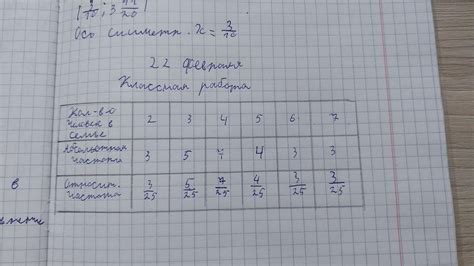 Ось симметр. x = 3/10
22 февраля
Классная работа
Кол-во человек в семье 2 3 4 5 6 7
Абсолютная частота 3 5 7 4 3 3
Относит. частота 3/25 5/25 7/25 4/25 3/25 3/25
в